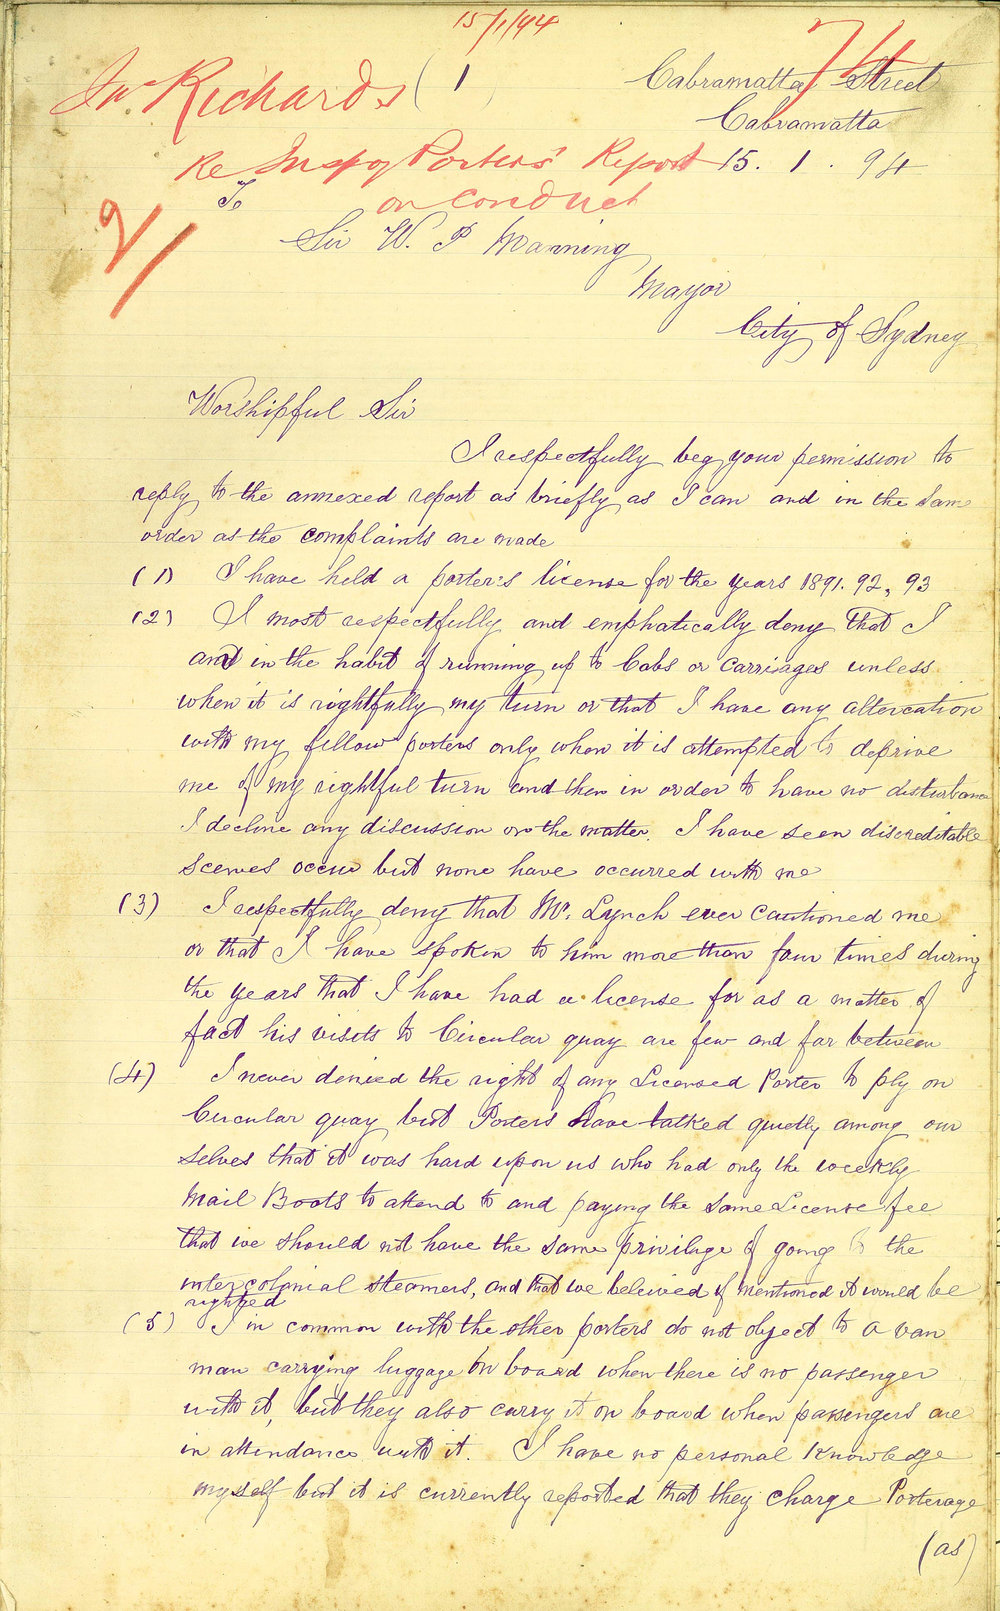 15/1/94
Jno. Richards
( 1 )
Cabramatta Street
Cabramatta
Re Insp of Porters' Report
15. 1. 94
on conduct
To
Sir W. P Manning
Mayor
City of Sydney
Worshipful Sir
I respectfully beg your permission to
reply to the annexed report as briefly as I can and in the same
order as the complaints are made
(1) I have held a porter's license for the years 1891. 92, 93
(2) I most respectfully and emphatically deny that I
am in the habit of running up to Cabs or Carriages unless
when it is rightfully my turn or that I have any altercation
with my fellow porters only when it is attempted to deprive
me of my rightful turn and then in order to have no disturbance
I decline any discussion on the matter. I have seen discreditable
scenes occur but none have occurred with me
(3) I respectfully deny that Mr. Lynch ever cautioned me
or that I have spoken to him more than four times during
the years that I have had a license for as a matter of
fact his visits to Circular quay are few and far between
(4) I never denied the right of any Licensed Porter to ply on
Circular quay but Porters have talked quietly among our
selves that it was hard upon us who had only the weekly
Mail Boats to attend to and paying the same License fee
that we should not have the same privilege of going to the
intercolonial steamers, and that we beleived if mentioned it would be
righted
(5) I in common with the other porters do not object to a van
man carrying luggage on board when there is no passenger
with it, but they also carry it on board when passengers are
in attendance with it. I have no personal knowledge
myself but it is currently reported that they charge Porterage
(as)